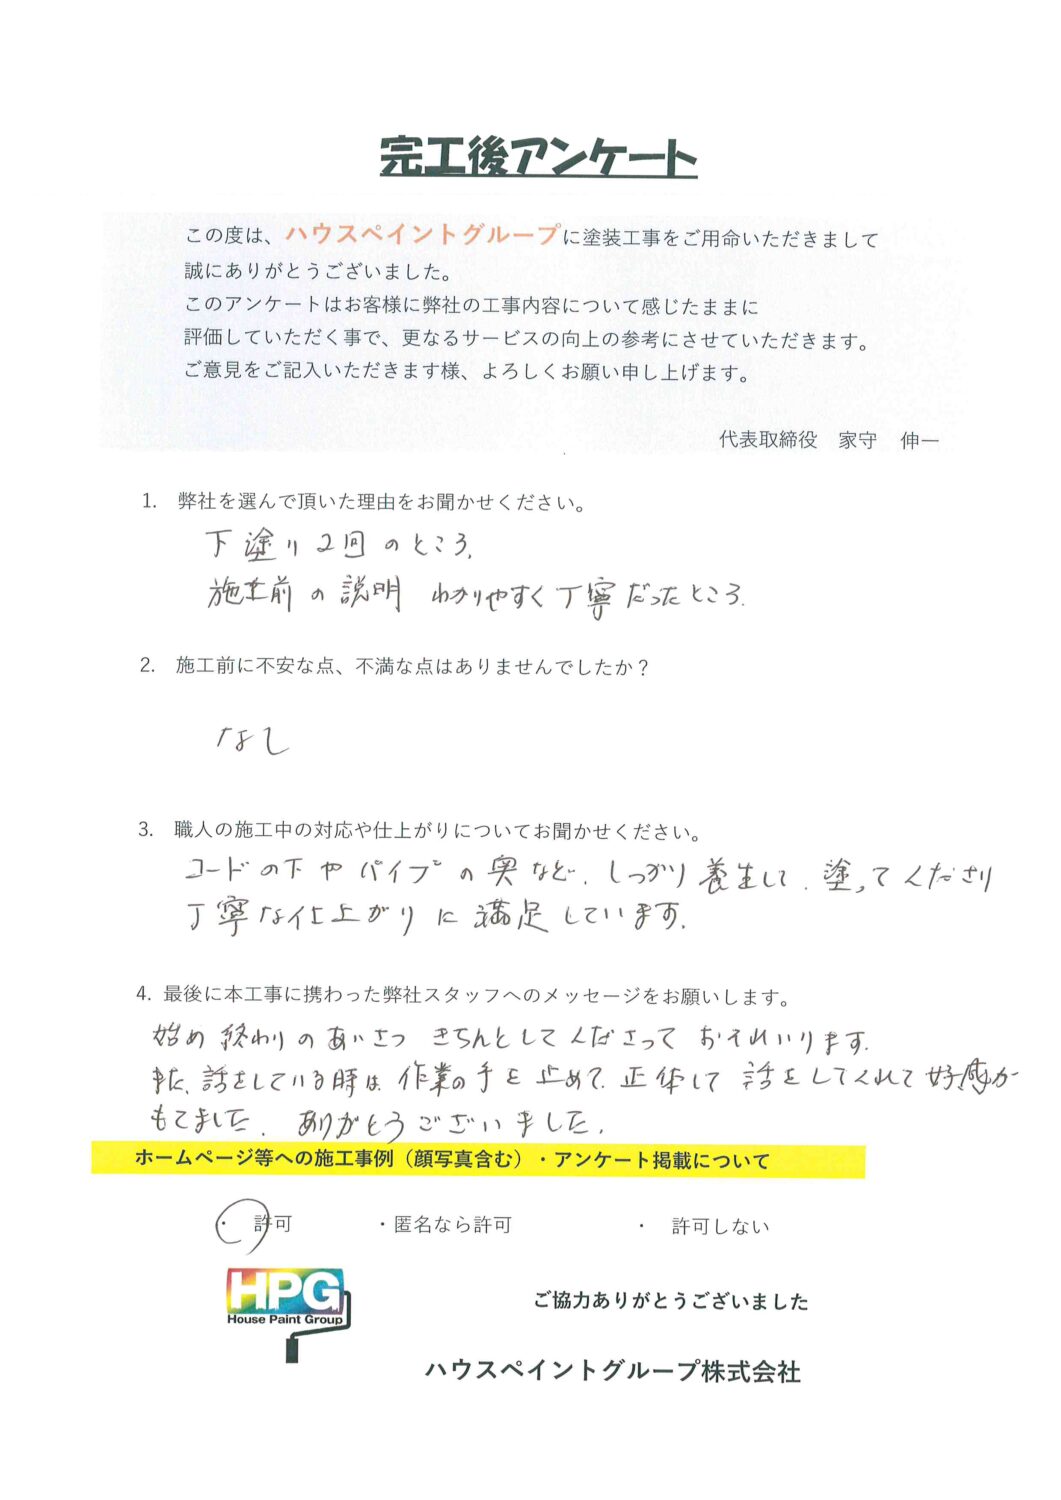 完工後アンケート
この度は、ハウスペイントグループに塗装工事をご用命いただきまして
誠にありがとうございました。
このアンケートはお客様に弊社の工事内容について感じたままに
評価していただく事で、更なるサービスの向上の参考にさせていただきます。
ご意見をご記入いただきます様、よろしくお願い申し上げます。
代表取締役 家守 伸一
1. 弊社を選んで頂いた理由をお聞かせください。
下塗り2回のところ、
施工前の説明 わかりやすく丁寧だったところ、
2. 施工前に不安な点、不満な点はありませんでしたか？
なし
3. 職人の施工中の対応や仕上がりについてお聞かせください。
コードの下やパイプの奥など、しっかり養生して、塗ってくださり
丁寧な仕上がりに満足しています。
4. 最後に本工事に携わった弊社スタッフへのメッセージをお願いします。
始め終わりのあいさつ きちんとしてくださって おそれいります。
また、話をしている時は、作業の手を止めて、正体して 話をしてくれて好感が
もてました。 ありがとうございました。
ホームページ等への施工事例（顔写真含む）・アンケート掲載について
・ 許可 ・匿名なら許可 ・ 許可しない
HPG
House Paint Group
ご協力ありがとうございました
ハウスペイントグループ株式会社